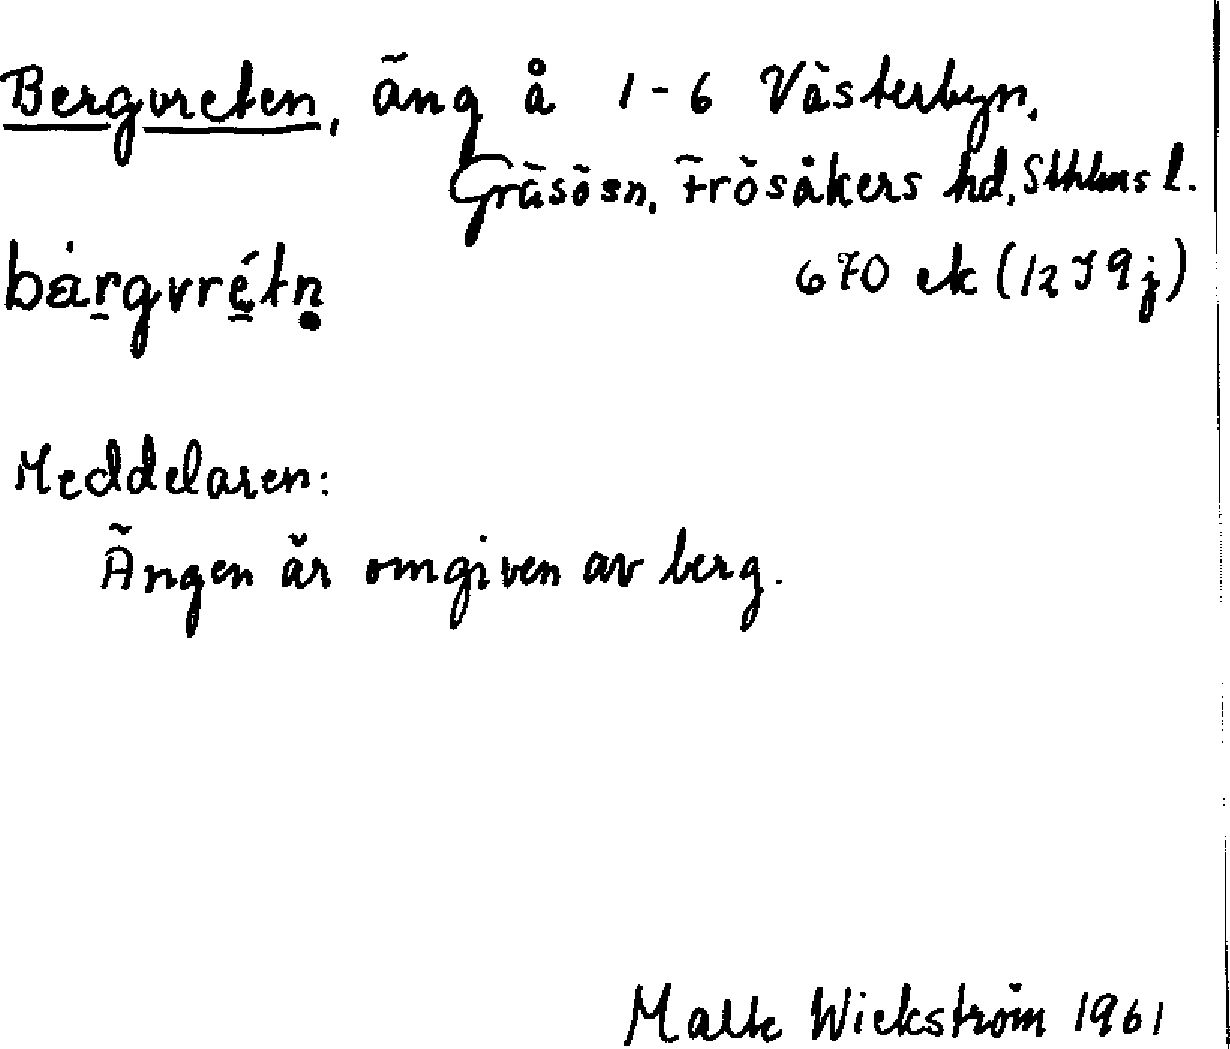 Bergvreten, äng å 1-6 Västerbyn,
Gräsö sn, Frösåkers hd, Sthlms l.
bàrgvrétn̥ 670 ek (12 I 9 j)
Meddelaren:
Ängen är omgiven av berg.
Malte Wickström 1961